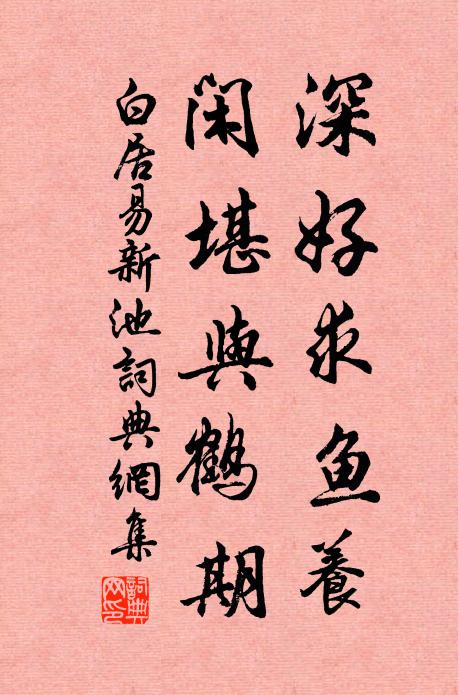 深好求鱼養
闲堪與鶴期
白居易新池詞典網集
詞典网印